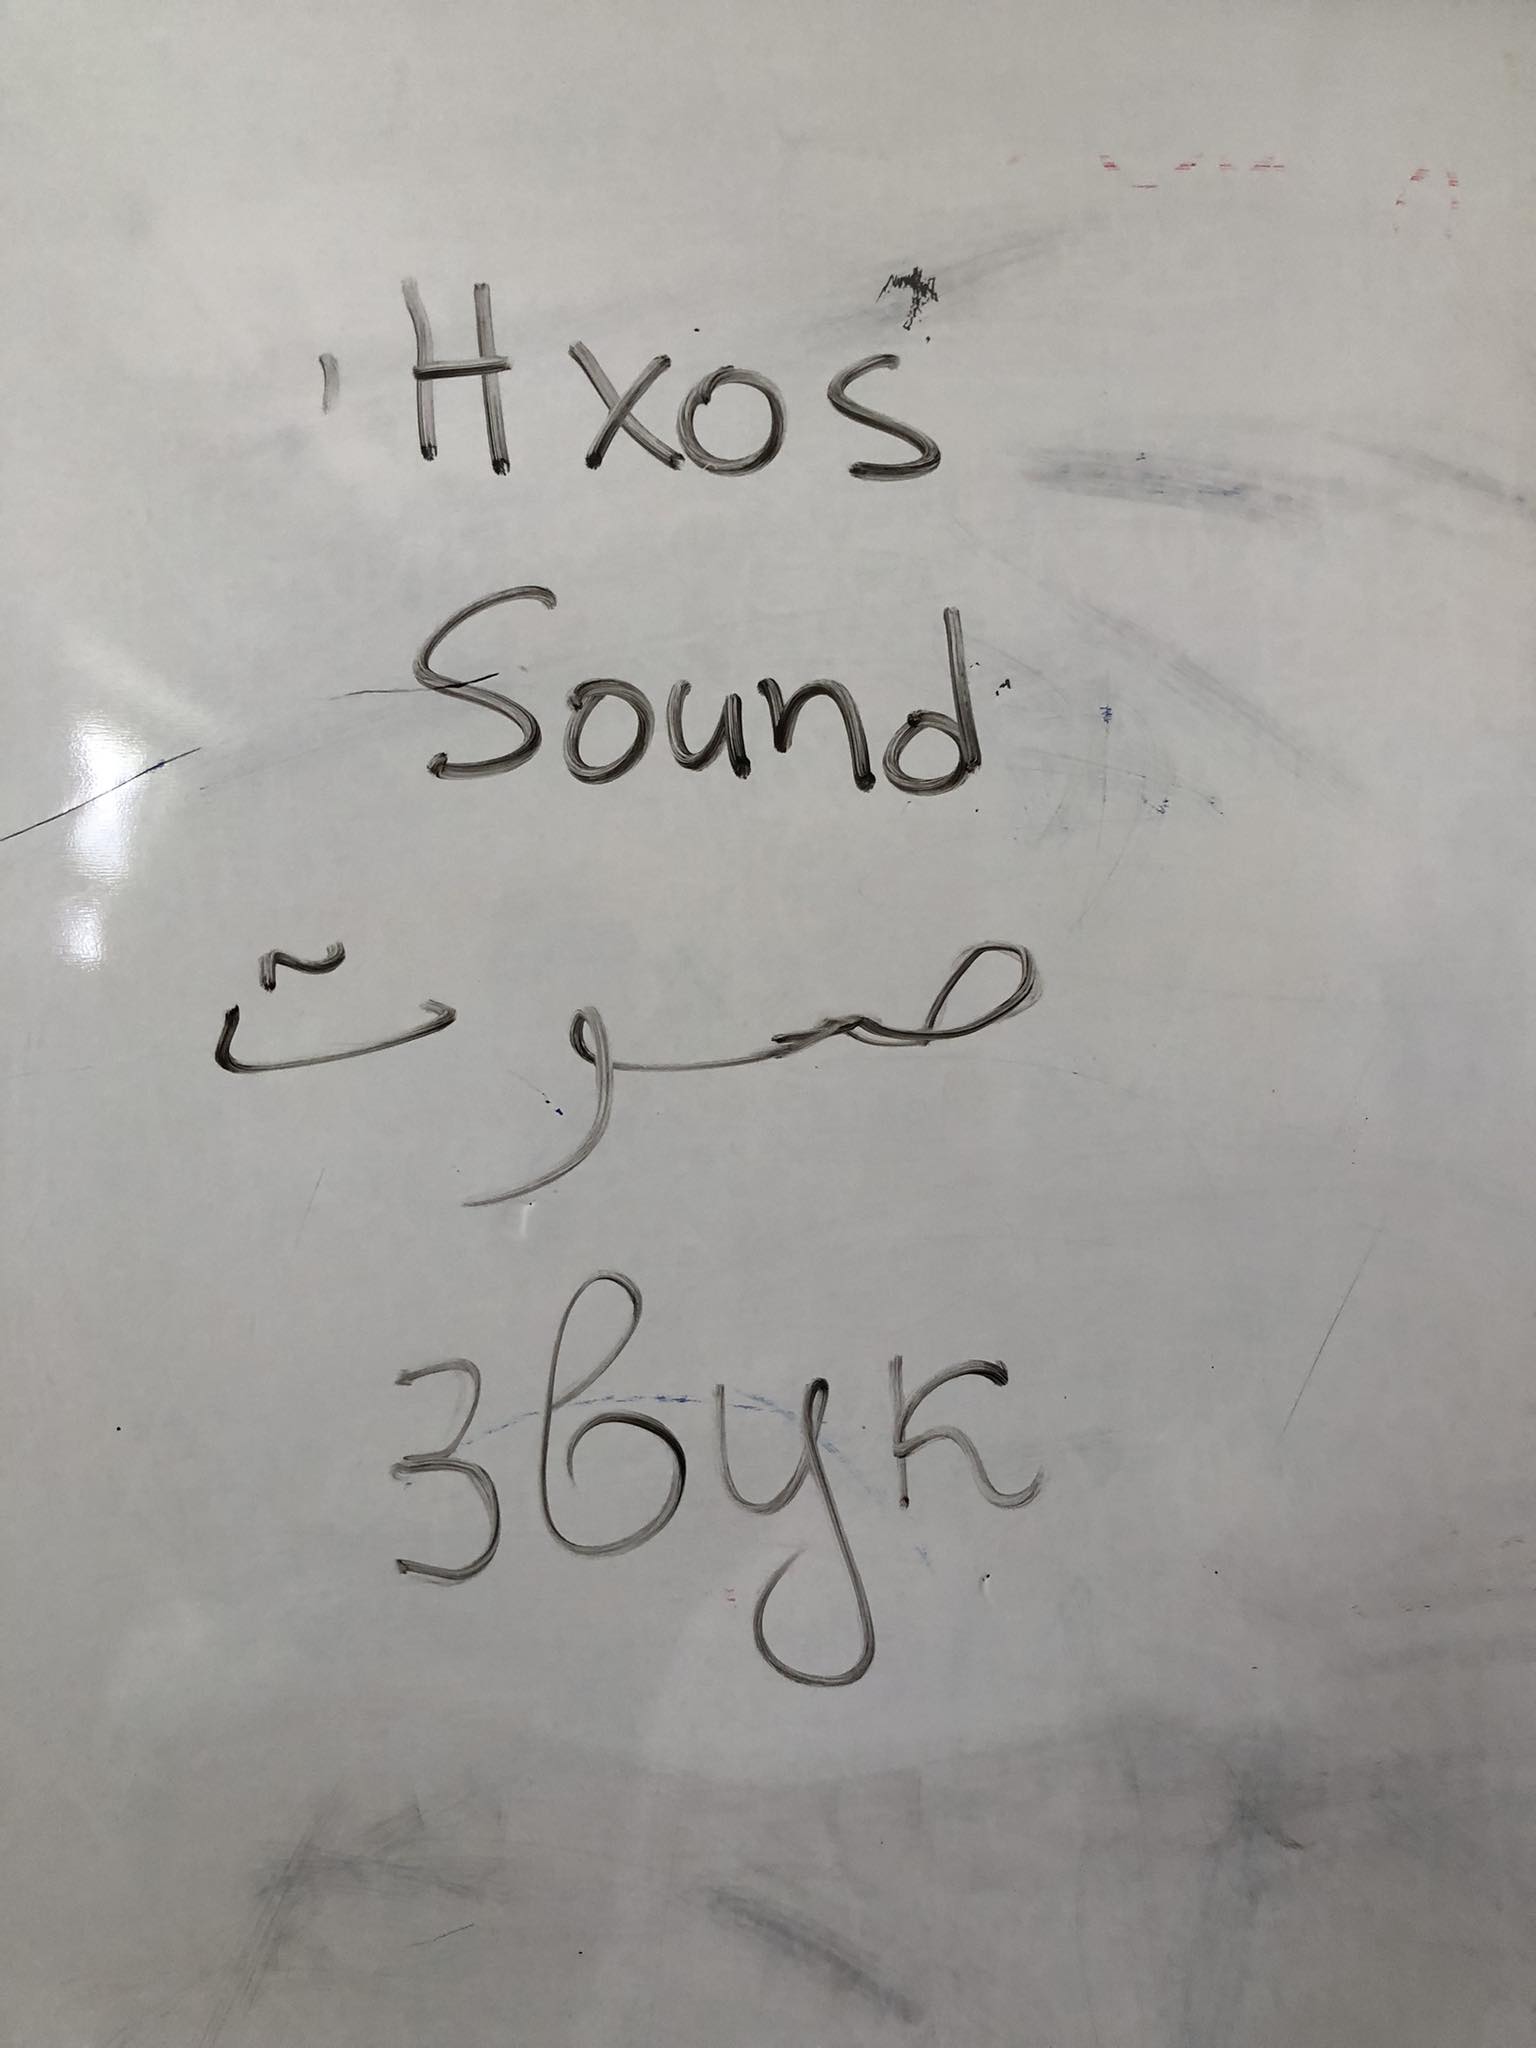 Ήχος
Sound
صوت
звук